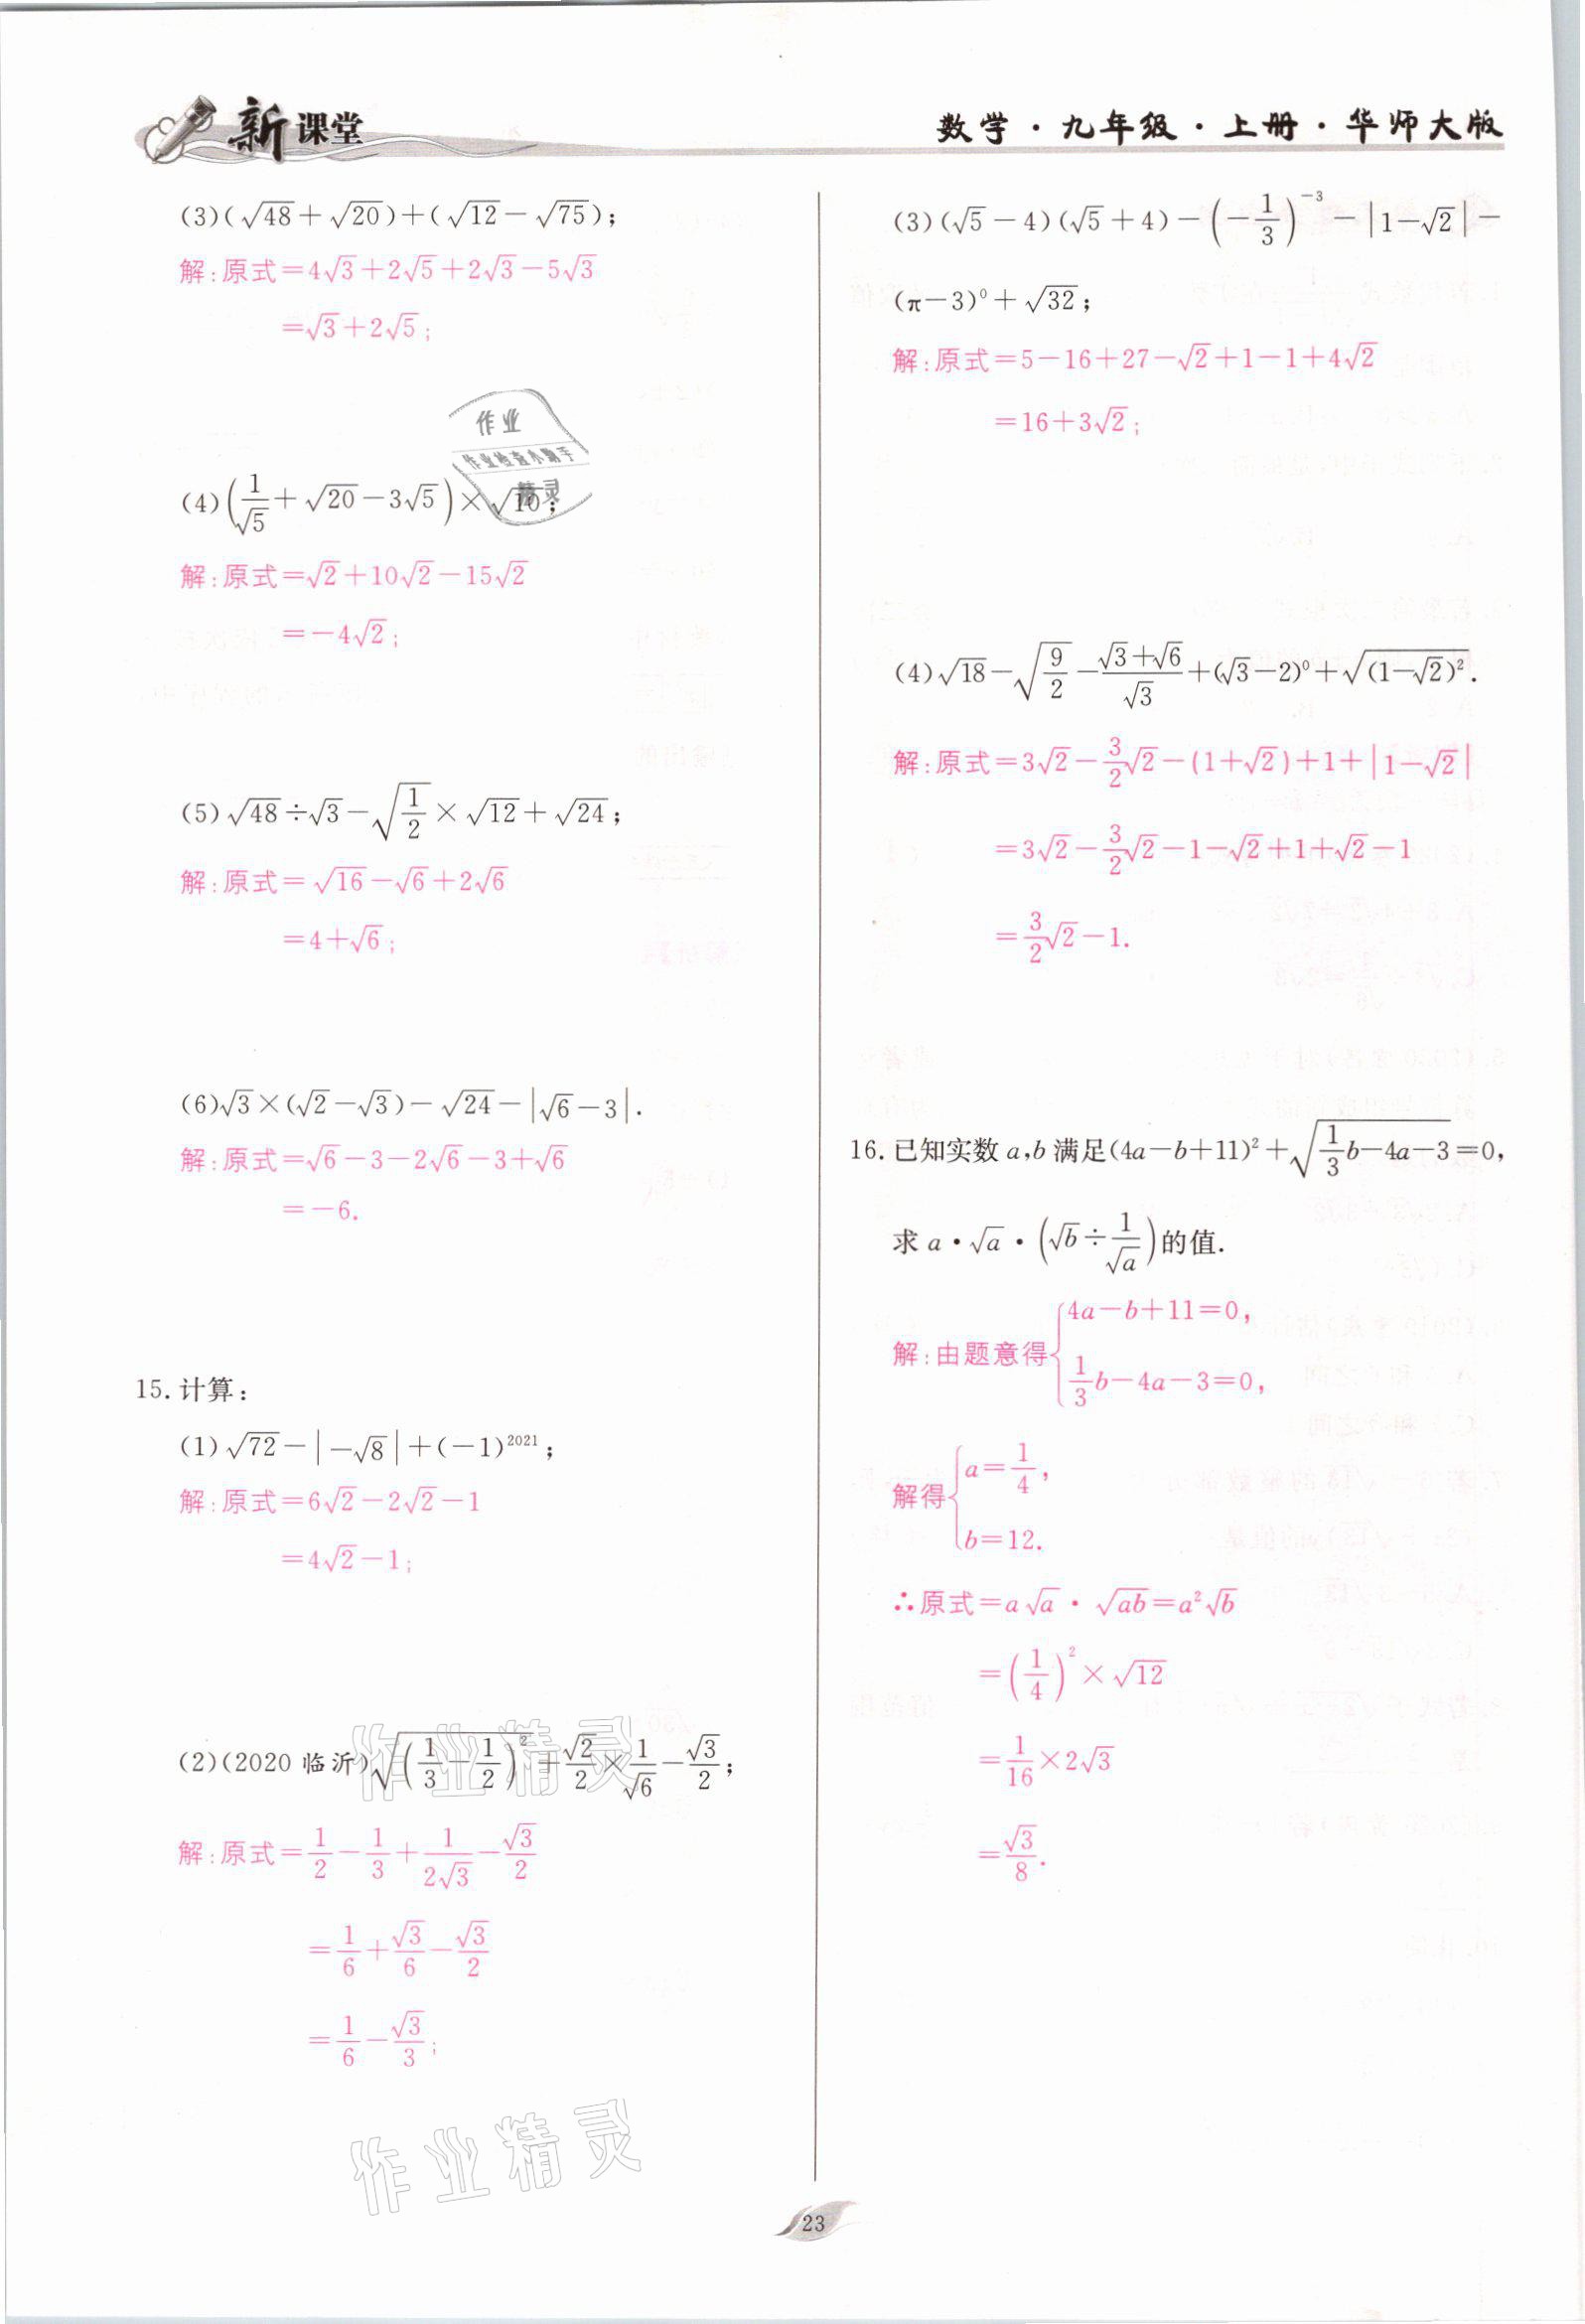 新课堂
数学·九年级·上册·华师大版
(3)(√48+√20)+(√12-√75);
解:原式=4√3+2√5+2√3-5√3
=√3+2√5;
(4)(1/√5+√20-3√5)×√10;
解:原式=√2+10√2-15√2
=-4√2;
(5)√48÷√3-√(1/2)×√12+√24;
解:原式=√16-√6+2√6
=4+√6;
(6)√3×(√2-√3)-√24-|√6-3|.
解:原式=√6-3-2√6-3+√6
=-6.
15.计算:
(1)√72-|-√8|+(-1)²⁰²¹;
解:原式=6√2-2√2-1
=4√2-1;
(2)(2020临沂)√((1/3-1/2)²)+√2/2×1/√6-√3/2;
解:原式=1/2-1/3+1/(2√3)-√3/2
=1/6+√3/6-√3/2
=1/6-√3/3;
(3)(√5-4)(√5+4)-(-1/3)⁻³-|1-√2|-
(π-3)⁰+√32;
解:原式=5-16+27-√2+1-1+4√2
=16+3√2;
(4)√18-√(9/2)-(√3+√6)/√3+(√3-2)⁰+√((1-√2)²).
解:原式=3√2-3/2√2-(1+√2)+1+|1-√2|
=3√2-3/2√2-1-√2+1+√2-1
=3/2√2-1.
16.已知实数a,b满足(4a-b+11)²+√(1/3b-4a-3)=0,
求a·√a·(√b÷1/√a)的值.
解:由题意得{4a-b+11=0,
1/3b-4a-3=0,
解得{a=1/4,
b=12.
∴原式=a√a·√ab=a²√b
=(1/4)²×√12
=1/16×2√3
=√3/8.
作业
作业检查小助手
精灵
作业精灵
作业精灵
23